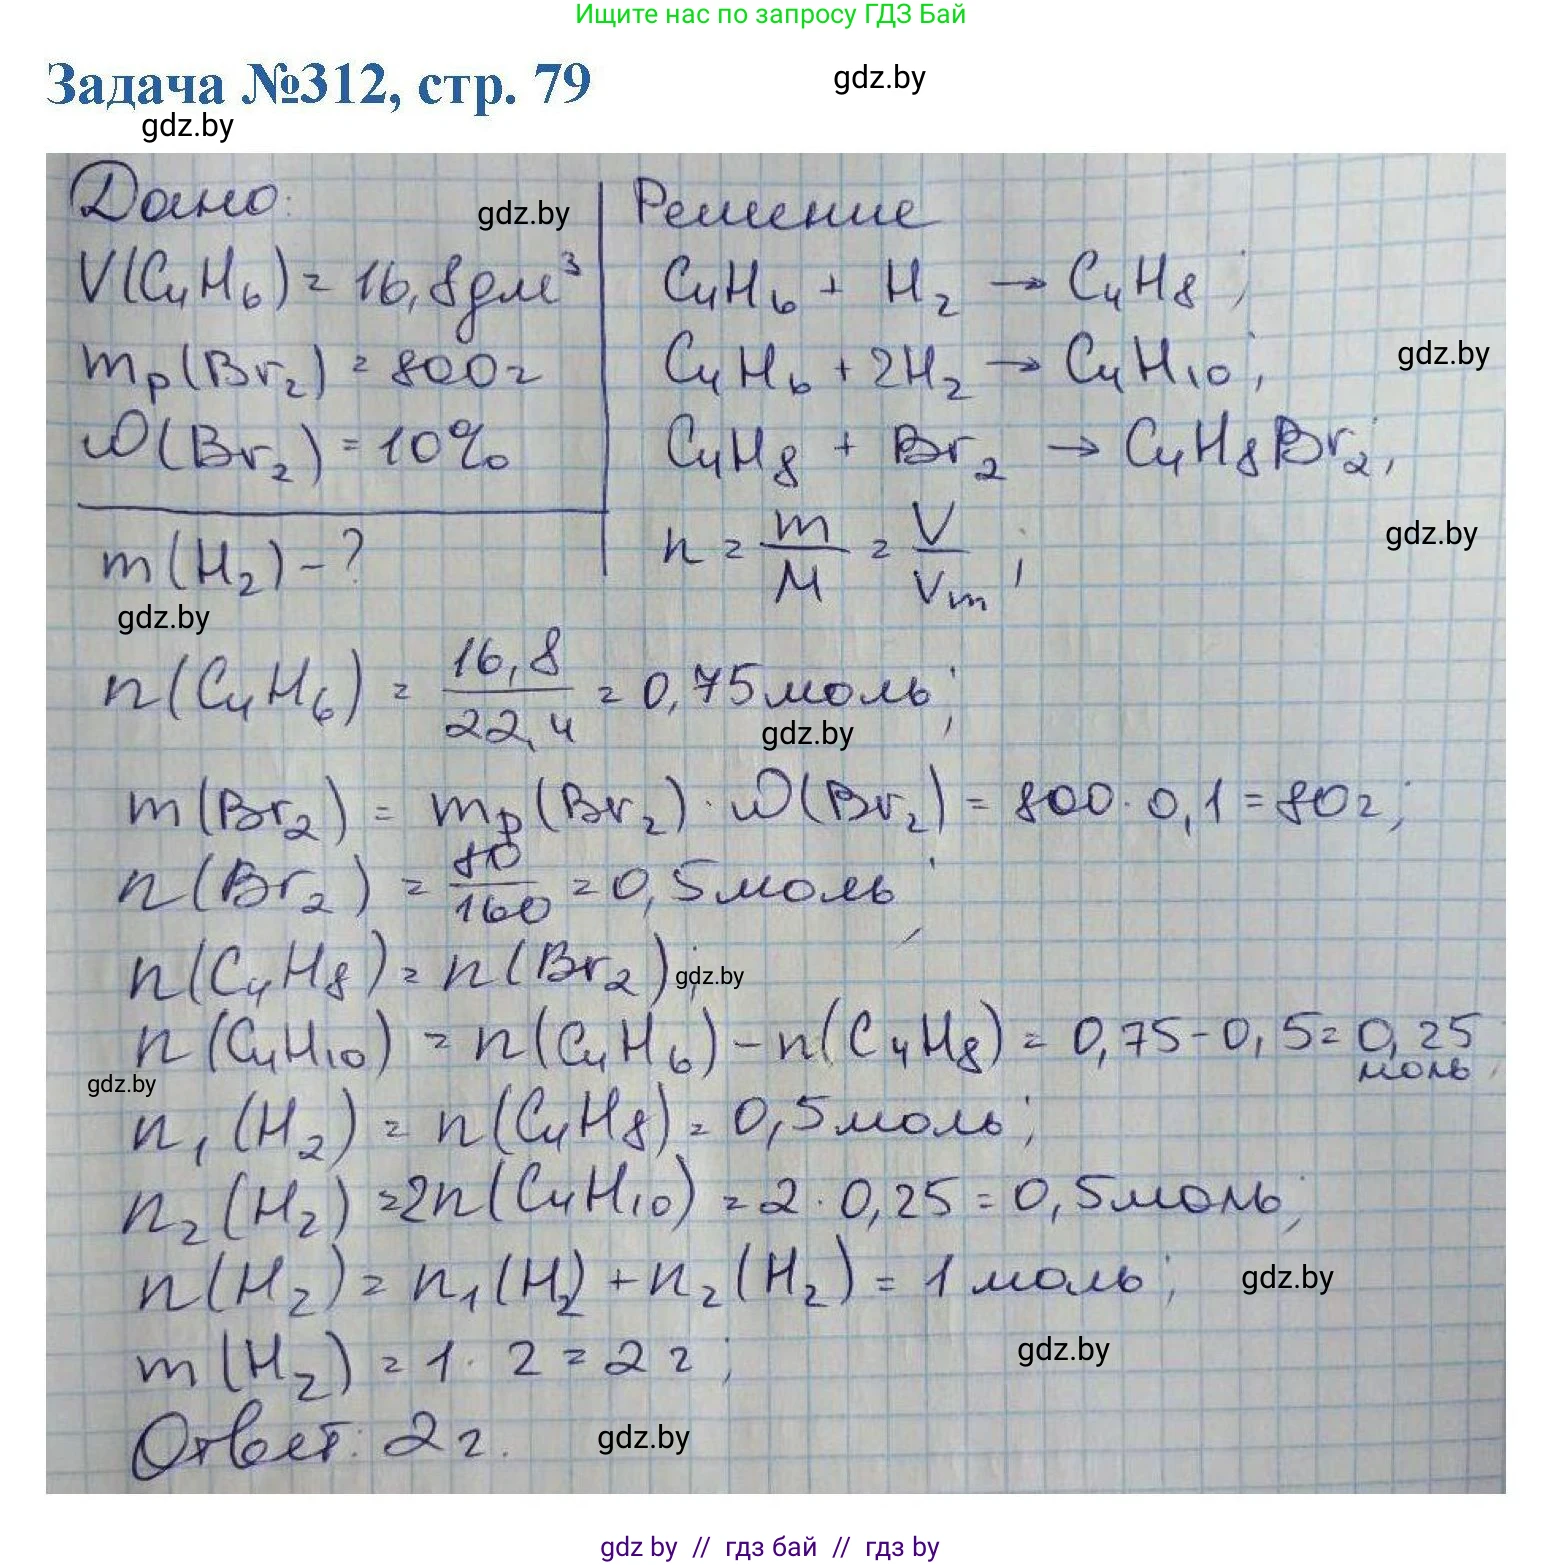 Ищите нас по запросу ГДЗ Бай
Задача №312, стр. 79
gdz.by
gdz.by
Дано:
gdz.by
Решение
V(C₄H₆) = 16,8дм³
C₄H₆ + H₂ → C₄H₈;
mр(Br₂) = 800г
C₄H₆ + 2H₂ → C₄H₁₀;
gdz.by
ω(Br₂) = 10%
C₄H₈ + Br₂ → C₄H₈Br₂;
m(H₂) - ?
n = m/M = V/Vm;
gdz.by
gdz.by
n(C₄H₆) = 16,8/22,4 = 0,75моль;
gdz.by
m(Br₂) = mр(Br₂) · ω(Br₂) = 800 · 0,1 = 80г;
n(Br₂) = 80/160 = 0,5моль;
n(C₄H₈) = n(Br₂);
gdz.by
n(C₄H₁₀) = n(C₄H₆) - n(C₄H₈) = 0,75 - 0,5 = 0,25 моль;
gdz.by
n₁(H₂) = n(C₄H₈) = 0,5моль;
n₂(H₂) = 2n(C₄H₁₀) = 2 · 0,25 = 0,5моль;
n(H₂) = n₁(H₂) + n₂(H₂) = 1 моль;
gdz.by
m(H₂) = 1 · 2 = 2 г;
gdz.by
Ответ: 2 г.
gdz.by
gdz by // гдз бай // гдз by